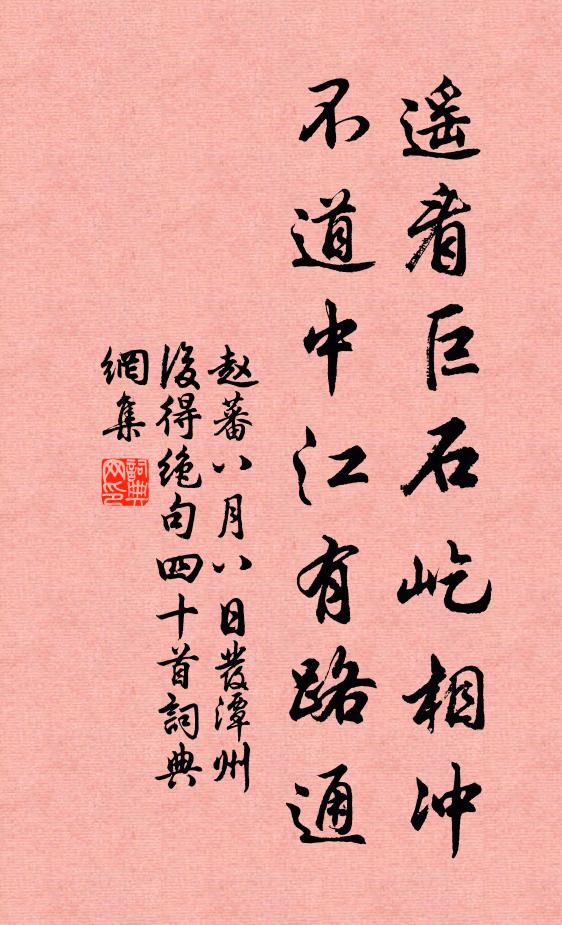 遥看巨石屹相冲
不道中江有路通
赵蕃八月八日發潭州
後得绝句四十首詞典
網集
詞典网印